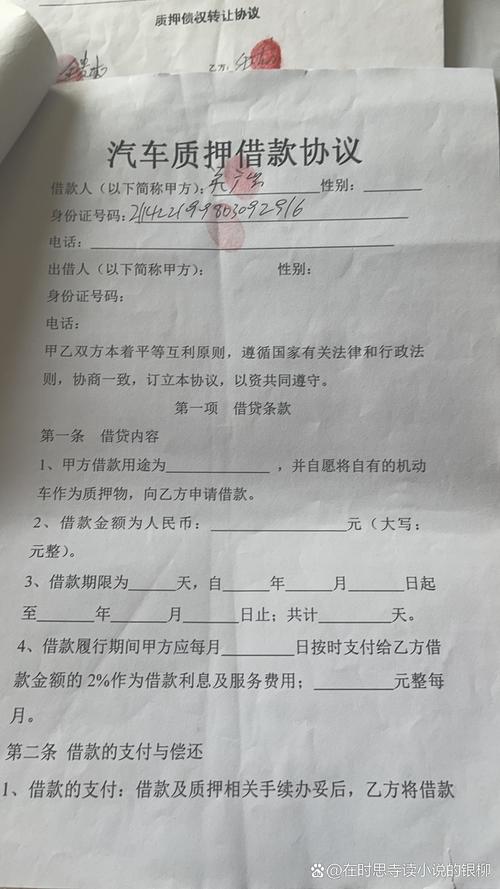 质押债权转让协议
乙方:
汽车质押借款协议
借款人（以下简称甲方）： 性别：
身份证号码：211422199803092916
电话：
出借人（以下简称甲方）： 性别：
身份证号码：
电话：
甲乙双方本着平等互利原则，遵循国家有关法律和行政法
则，协商一致，订立本协议，以资共同遵守。
第一项 借贷条款
第一条 借贷内容
1、甲方借款用途为 ，并自愿将自有的机动
车作为质押物，向乙方申请借款。
2、借款金额为人民币： 元（大写；
元整）。
3、借款期限为 天，自 年 月 日起
至 年 月 日止；共计 天。
4、借款履行期间甲方应每月 日按时支付给乙方借
款金额的 2%作为借款利息及服务费用； 元整每
月。
第二条 借款的支付与偿还
1、借款的支付：借款及质押相关手续办妥后，乙方将借款
@在时思寺读小说的银柳